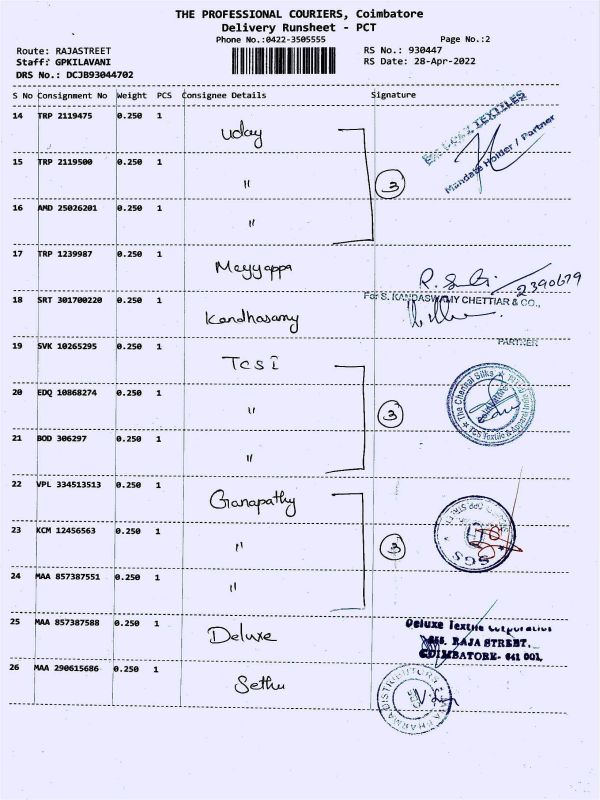 THE PROFESSIONAL COURIERS, Coimbatore
Delivery Runsheet - PCT
Phone No.:0422-3505555 Page No.:2
Route: RAJASTREET RS No.: 930447
Staff: GPKILAVANI RS Date: 28-Apr-2022
DRS No.: DCJB93044702
S No Consignment No Weight PCS Consignee Details Signature
14 TRP 2119475 0.250 1 Uday
TEXTILES
Mandate Holder / Partner
15 TRP 2119500 0.250 1 〃 3
16 AMD 25026201 0.250 1 〃
17 TRP 1239987 0.250 1 Meyyappa
2390679
18 SRT 301700220 0.250 1 Kandhasamy
For S. KANDASWAMY CHETTIAR & CO.,
PARTNER
19 SVK 10265295 0.250 1 TCSI
The Chennai Silks
TCS Textile & Apparel
20 EDQ 10868274 0.250 1 〃 3
21 BOD 306297 0.250 1 〃
22 VPL 334513513 0.250 1 Ganapathy
23 KCM 12456563 0.250 1 〃 3
SGS
24 MAA 857387551 0.250 1 〃
25 MAA 857387588 0.250 1 Deluxe
Deluxe Textile Corporation
RAJA STREET,
COIMBATORE- 641 001.
26 MAA 290615686 0.250 1 Sethu
PHARMA DISTRIBUTORS